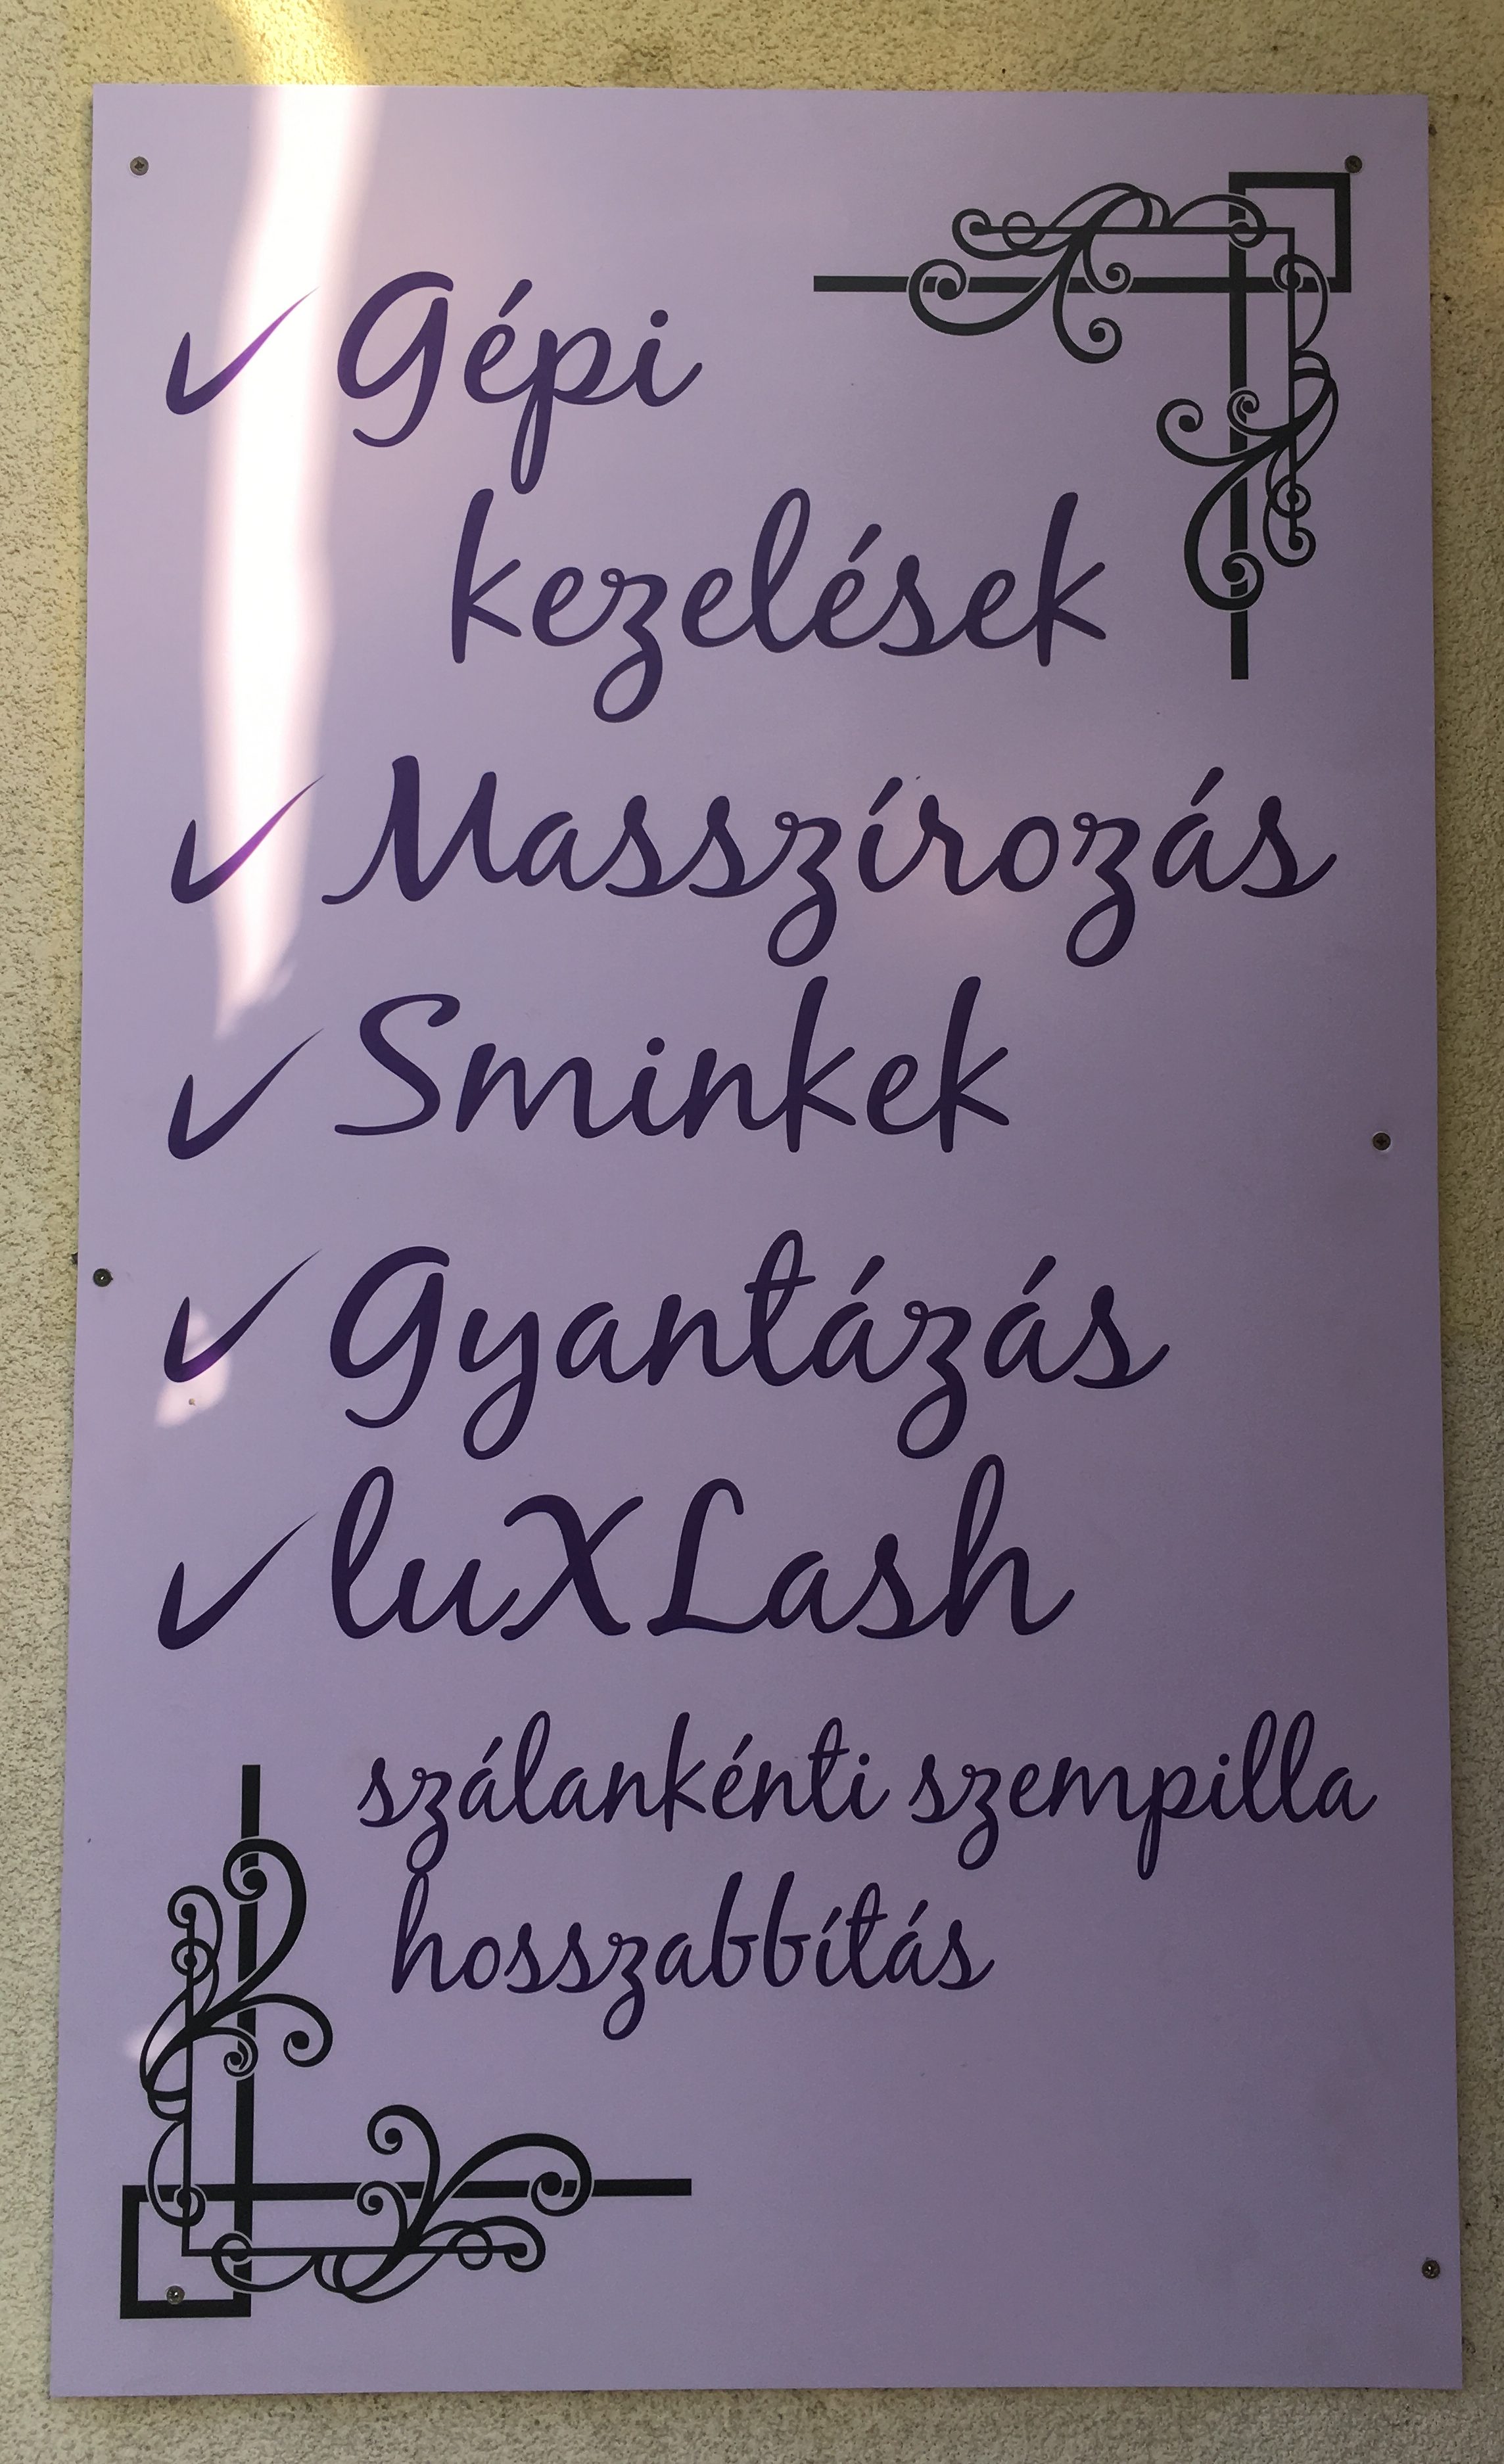 ✓ Gépi
kezelések
✓ Masszírozás
✓ Sminkek
✓ Gyantázás
✓ luXLash
szálankénti szempilla
hosszabbítás